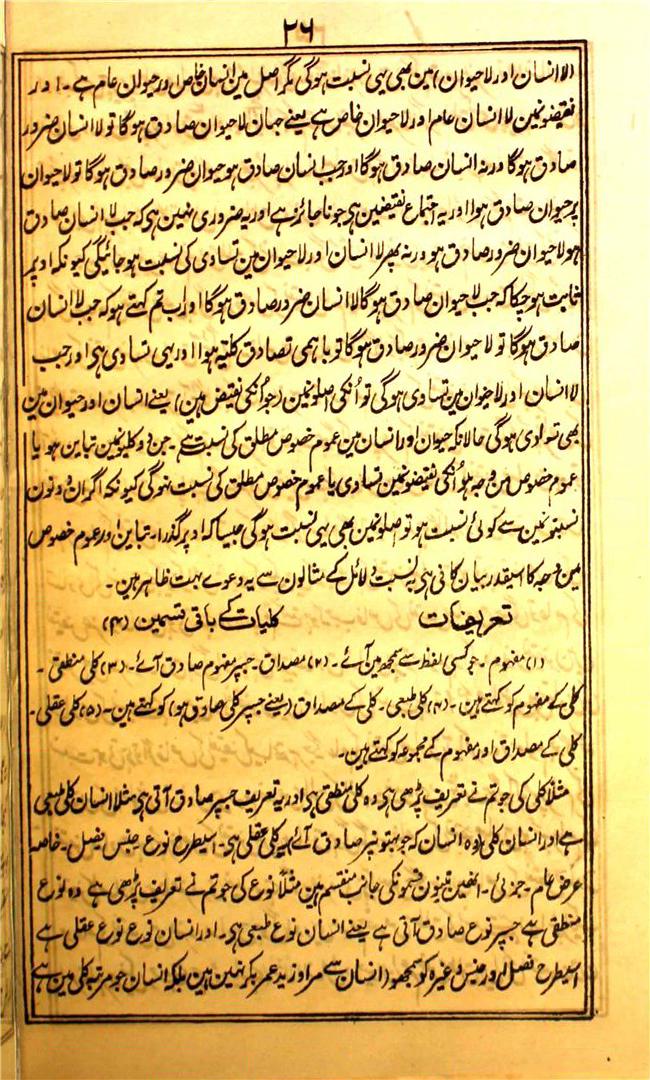 ۲۶
(لا انسان اور لا حیوان) مین بھی یہی نسبت ہوگی مگر اصل مین انسان خاص اور حیوان عام ہے۔ اور
نقیضونمین لا انسان عام اور لا حیوان خاص ہے یعنے جہان لا حیوان صادق ہوگا تو لا انسان ضرور
صادق ہوگا ورنہ انسان صادق ہوگا اور جب انسان صادق ہو حیوان ضرور صادق ہوگا تو لا حیوان
پر حیوان صادق ہوا اور یہ اجتماع نقیضین ہی جو ناجائز ہے اور یہ ضروری نہین ہی کہ جب لا انسان صادق
ہو لا حیوان ضرور صادق ہو ورنہ پھر لا انسان اور لا حیوان مین تساوی کی نسبت ہو جائیگی کیونکہ اوپر
ثابت ہوچکا کہ جب لا حیوان صادق ہوگا لا انسان ضرور صادق ہوگا اور اب تم کہتے ہو کہ جب لا انسان
صادق ہوگا تو لا حیوان ضرور صادق ہوگا تو باہمی تصادق کلیتہ ہوا اور یہی تساوی ہی اور جب
لا انسان اور لا حیوان مین تساوی ہوگی تو اُنکی اصلونمین (جو اُنکی نقیض ہین) یعنے انسان اور حیوان مین
بھی تساوی ہوگی حالانکہ حیوان اور انسان مین عموم خصوص مطلق کی نسبت ہے۔ جن دو کلیونمین تباین ہو یا
عموم خصوص من وجہ ہو اُنکی نقیضونمین تساوی یا عموم خصوص مطلق کی نسبت نہوگی کیونکہ اگر ان دونون
نسبتونمین سے کوئی نسبت ہو تو اصلونمین بھی یہی نسبت ہوگی جیسا کہ اوپر گذرا۔ تباین اور عموم خصوص
من وجہ کا اسیقدر بیان کافی ہی بہ نسبت دلائل کے مثالون سے یہ دعوے بہت ظاہر ہین۔
تعریفات کلیات کے باقی قسمین (۴)
(۱) مفہوم۔ جو کسی لفظ سے سمجھ مین آئے۔ (۲) مصداق۔ جسپر مفہوم صادق آئے۔ (۳) کلی منطقی۔
کلی کے مفہوم کو کہتے ہین۔ (۴) کلی طبعی۔ کلی کے مصداق (یعنے جسپر کلی صادق ہو) کو کہتے ہین۔ (۵) کلی عقلی۔
کلی کے مصداق اور مفہوم کے مجموعہ کو کہتے ہین۔
مثلاً کلی کی جو تم نے تعریف پڑھی ہی وہ کلی منطقی ہی اور یہ تعریف جسپر صادق آتی ہی مثلاً انسان کلی طبعی
ہے اور انسان کلی (وہ انسان کہ جو بہتونپر صادق آئے) یہ کلی عقلی ہی۔ اسیطرح نوع جنس فصل۔ خاصہ
عرض عام۔ جزئی۔ انھین تینون قسمونکی جانب منقسم ہین مثلاً نوع کی جو تم نے تعریف پڑھی ہے وہ نوع
منطقی ہے جسپر نوع صادق آتی ہے یعنے انسان نوع طبعی ہی۔ اور انسان نوع نوع عقلی ہے
اسیطرح فصل اور جنس وغیرہ کو سمجھو (انسان سے مراد زید عمر بکر نہین ہین بلکہ انسان جو مرتبہ کلی مین ہے